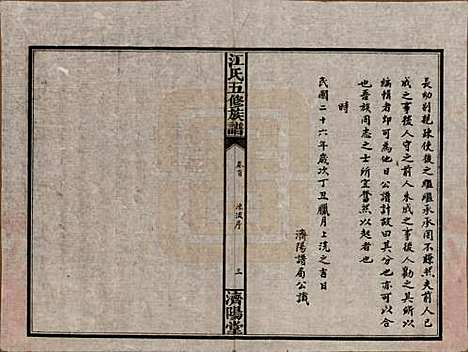 長幼別親疎使後之繼繼承承罔不歸然夫前人已
成之事後人守之前人未成之事後人勷之其所以
編輯者即可為他日公譜計故曰其分也亦可以合
也吾族同志之士所宜奮然以起者也
時
民國二十六年歲次丁丑臘月上浣之吉日
濟陽譜局公識
江氏五修族譜
卷首
序
三
濟陽堂